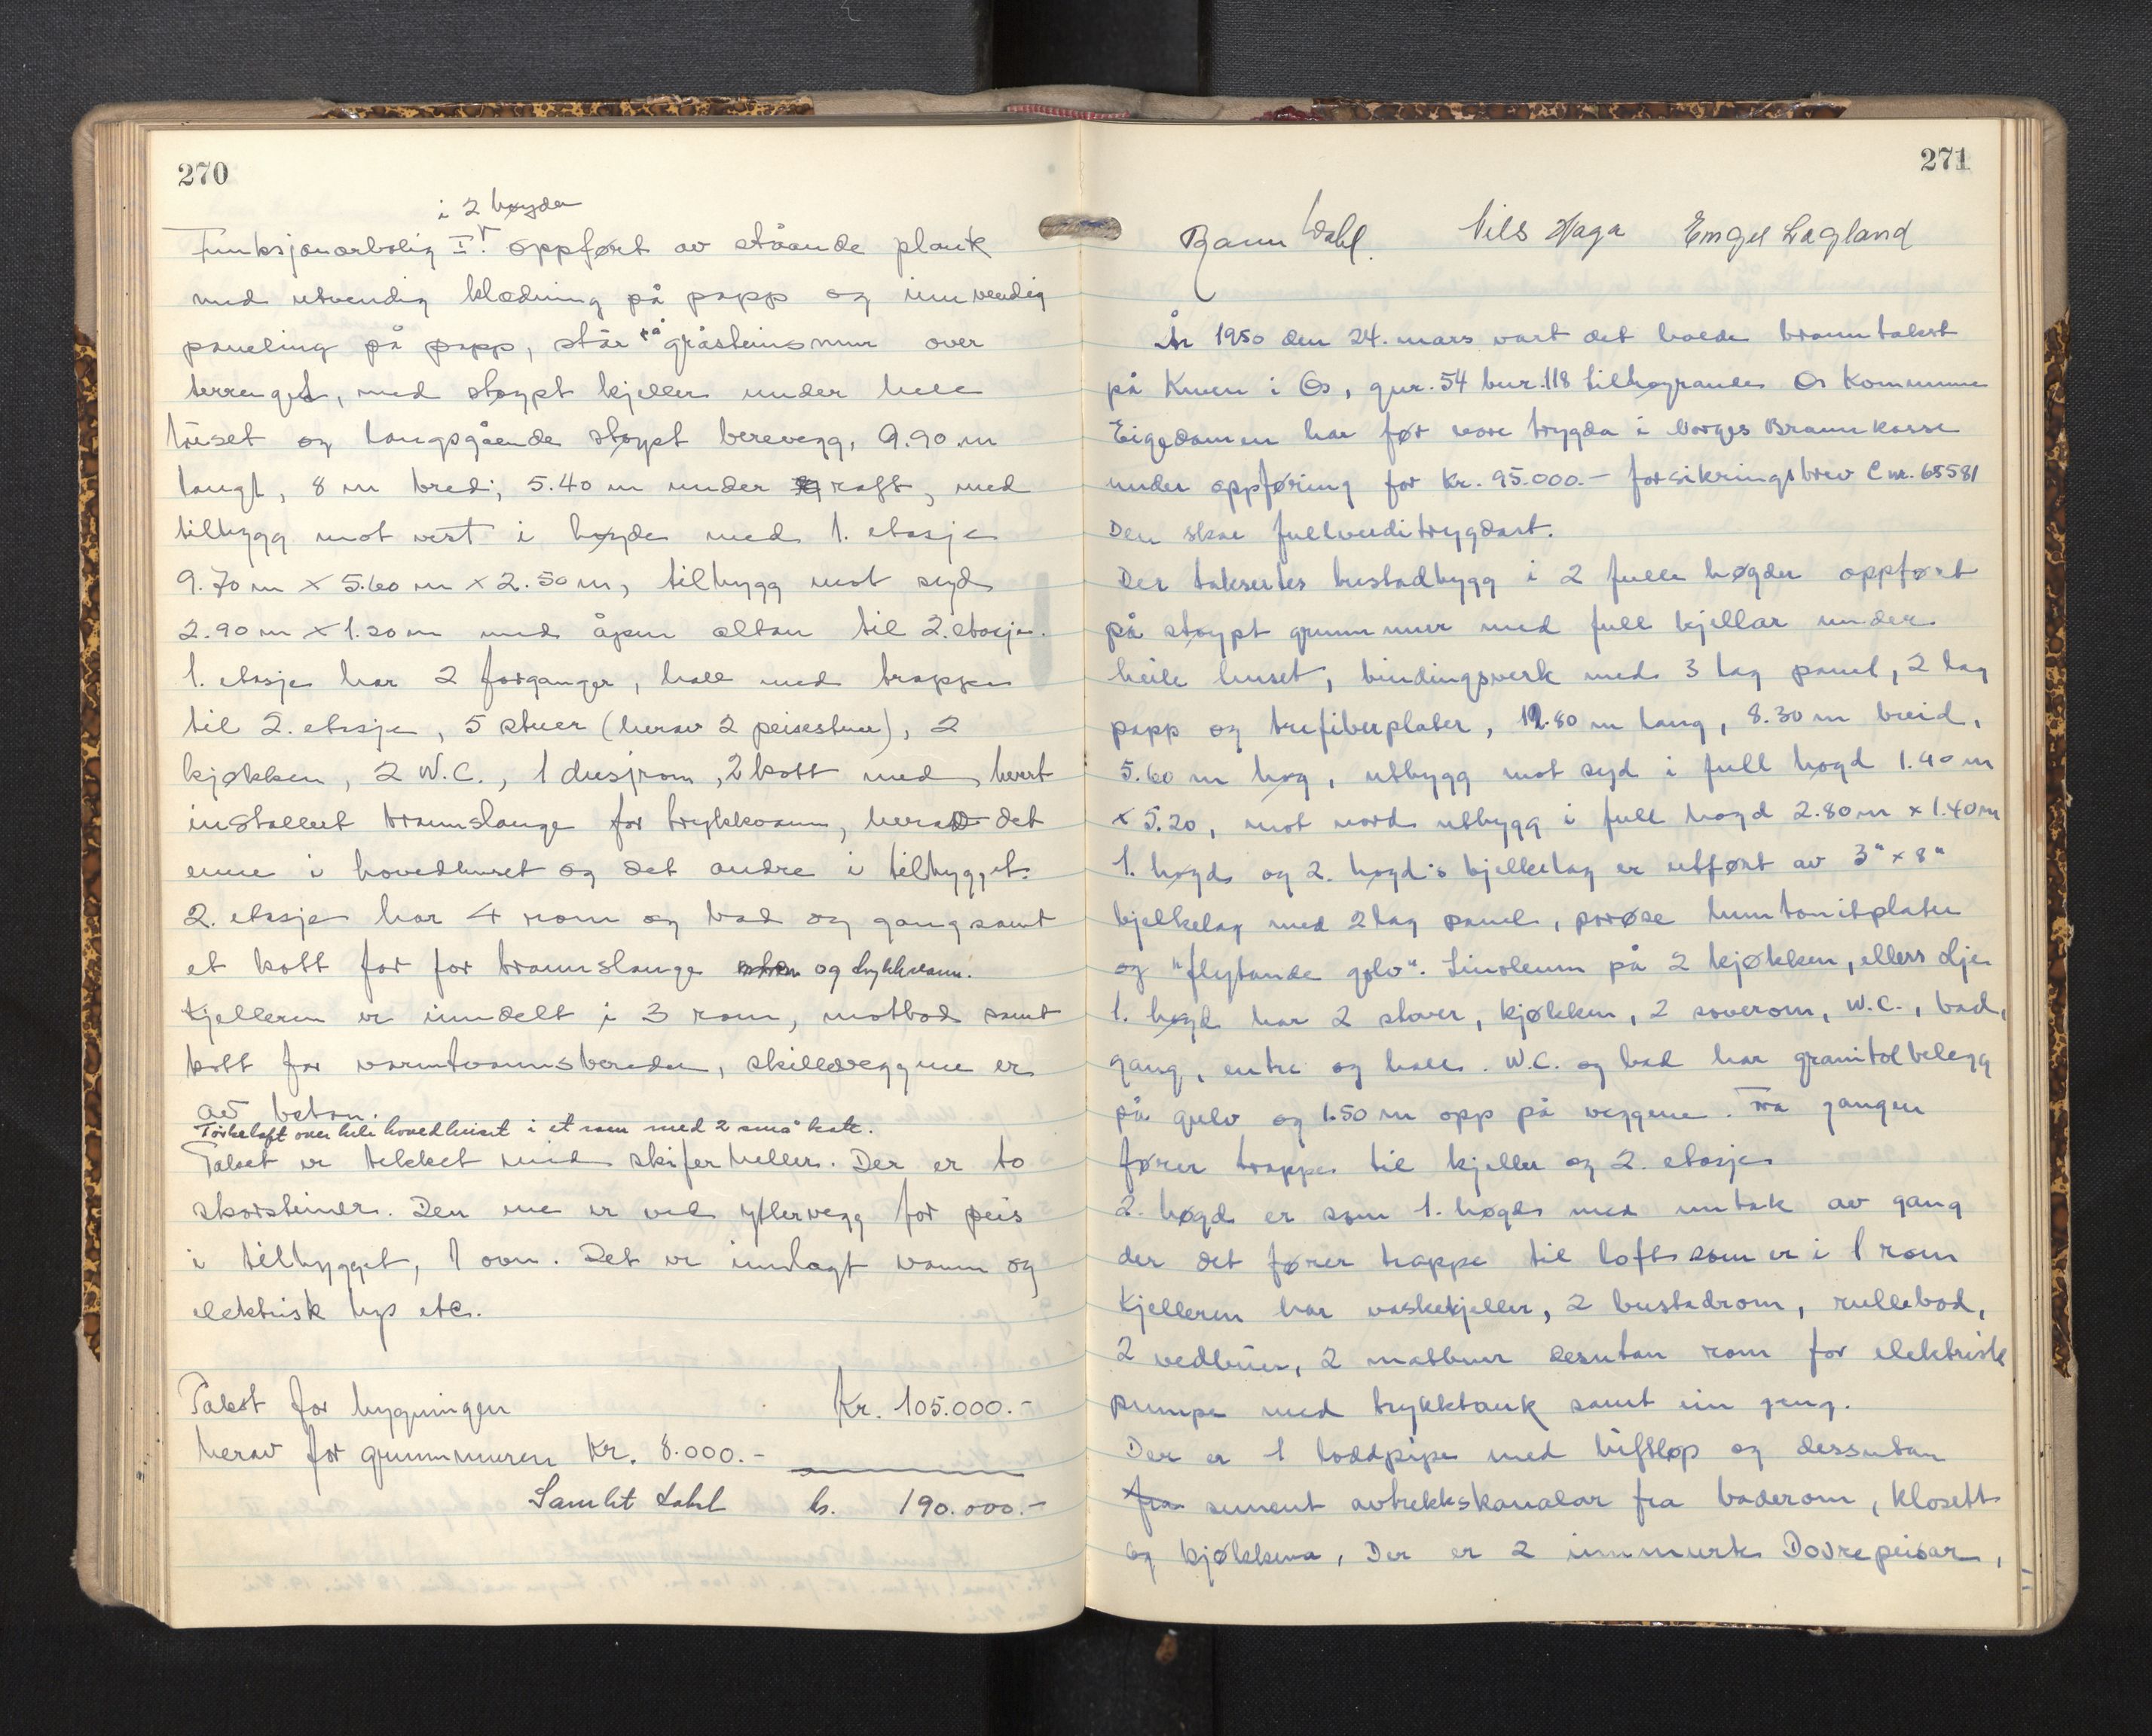 270
i 2 høyder
Funksjonærbolig I. oppført av stående plank
med utvendig klædning på papp og innvendig
paneling på papp, står på gråsteinsmur over
terrenget, med støypt kjeller under hele
huset og langsgående støypt berevegg, 9.90 m
langt, 8 m bred, 5.40 m under raft, med
tilbygg mot vest i høyde med 1. etasje
9.70 m x 5.60 m x 2.50 m, tilbygg mot syd
2.90 m x 1.20 m med åpen altan til 2. etasje.
1. etasje har 2 forganger, hall med trappe
til 2. etasje, 5 stuer (herav 2 peisestuer), 2
kjøkken, 2 W.C., 1 dusjrom, 2 kott med hvert
installert brannslange for trykkvann, herav det
ene i hovedhuset og det andre i tilbygget.
2. etasje har 4 rom og bad og gang samt
et kott for for brannslange og trykkvann.
Kjelleren er inndelt i 3 rom, matbod samt
kott for varmtvannsbereder, skilleveggene er
av beton.
Tørkeloft over hele hovedhuset i et rom med 2 små kott.
Taket er tekket med skiferheller. Der er to
skorsteiner. Den ene er ved yttervegg for peis
i tilbygget, 1 ovn. Det er innlagt vann og
elektrisk lys etc.
Takst for bygningen Kr. 105.000.-
herav for grunnmuren Kr. 8.000.-
Samlet takst kr. 190.000.-
271
Wahl. Nils Haga Engel Lagland
År 1950 den 24. mars vart det halde branntakst
på Kuen i Os, gnr. 54 bnr. 118 tilhøyrande Os Kommune
Eigedomen har før vore trygda i Norges Brannkasse
under oppføring for Kr. 95.000.- forsikringsbrev C nr. 65581
Den skal fullverditrygdast.
Der taksertes bustadbygg i 2 fulle høgder oppført
på støypt grunnmur med full kjellar under
heile huset, bindingsverk med 3 lag panel, 2 lag
papp og trefiberplater, 12.80 m lang, 8.30 m breid,
5.60 m høg, utbygg mot syd i full høgd 1.40 m
x 5.20, mot nord utbygg i full høgd 2.80 m x 1.40 m
1. høgds og 2. høgd's bjelkelag er utført av 3" x 8"
bjelkelag med 2 lag panel, porøse huntonitplater
og "flytande golv". Linoleum på 2 kjøkken, ellers olje.
1. høgd har 2 stover, kjøkken, 2 soverom, W.C., bad,
gang, entre og hall. W.C. og bad har granitolbelegg
på gulv og 1.50 m opp på veggene. Fra gangen
fører trappe til kjeller og 2. etasje
2. høgd er som 1. høgd med untak av gang
der det fører trappe til loft som er i 1 rom
Kjelleren har vaskekjeller, 2 bustadrom, rullebod,
2 vedbuer, 2 matbuer desutan rom for elektrisk
pumpe med trykktank samt ein gang.
Der er 1 loddpipe med luftløp og dessutan
fra sement avtrekkskanalar fra baderom, klosett
og kjøkkena, Der er 2 innmurte Dovrepeisar,